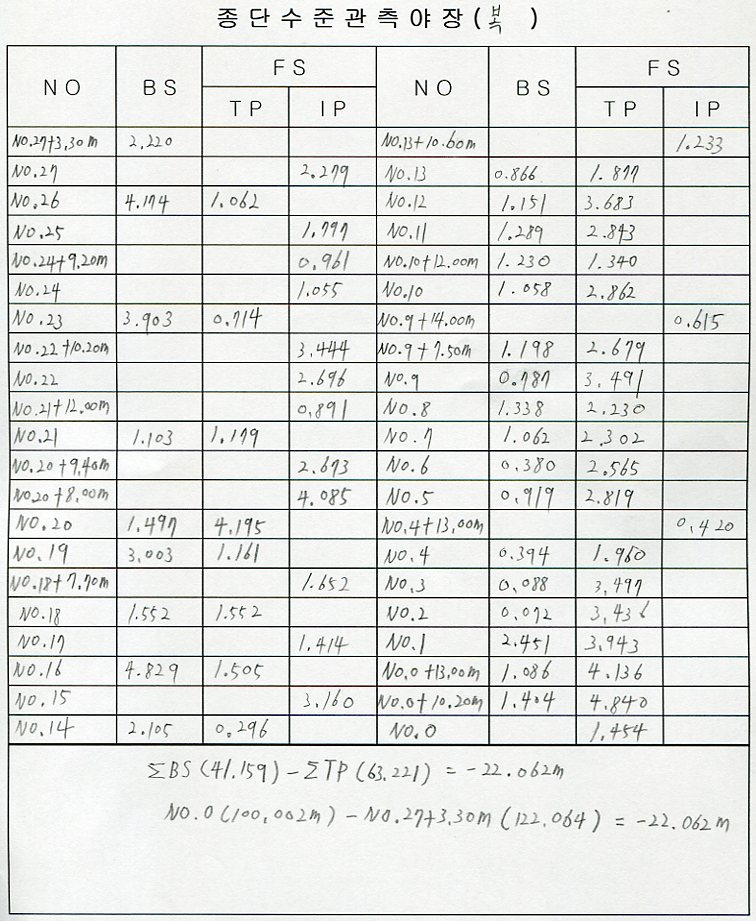 종단수준관측야장(복)
NO BS FS NO BS FS
TP IP TP IP
NO.27+3.30m 2.220 NO.13+10.60m 1.233
NO.27 2.279 NO.13 0.866 1.877
NO.26 4.174 1.062 NO.12 1.151 3.683
NO.25 1.797 NO.11 1.289 2.843
NO.24+9.20m 0.961 NO.10+12.00m 1.230 1.340
NO.24 1.055 NO.10 1.058 2.862
NO.23 3.903 0.714 NO.9+14.00m 0.615
NO.22+10.20m 3.444 NO.9+7.50m 1.198 2.679
NO.22 2.696 NO.9 0.787 3.491
NO.21+12.00m 0.891 NO.8 1.338 2.230
NO.21 1.103 1.179 NO.7 1.062 2.302
NO.20+9.40m 2.673 NO.6 0.380 2.565
NO.20+8.00m 4.085 NO.5 0.919 2.819
NO.20 1.497 4.195 NO.4+13.00m 0.420
NO.19 3.003 1.161 NO.4 0.394 1.960
NO.18+7.70m 1.652 NO.3 0.088 3.497
NO.18 1.552 1.552 NO.2 0.072 3.436
NO.17 1.414 NO.1 2.451 3.943
NO.16 4.829 1.505 NO.0+13.00m 1.086 4.136
NO.15 3.160 NO.0+10.20m 1.404 4.840
NO.14 2.105 0.296 NO.0 1.454
ΣBS(41.159)-ΣTP(63.221)=-22.062m
NO.0(100.002m)-NO.27+3.30m(122.064)=-22.062m